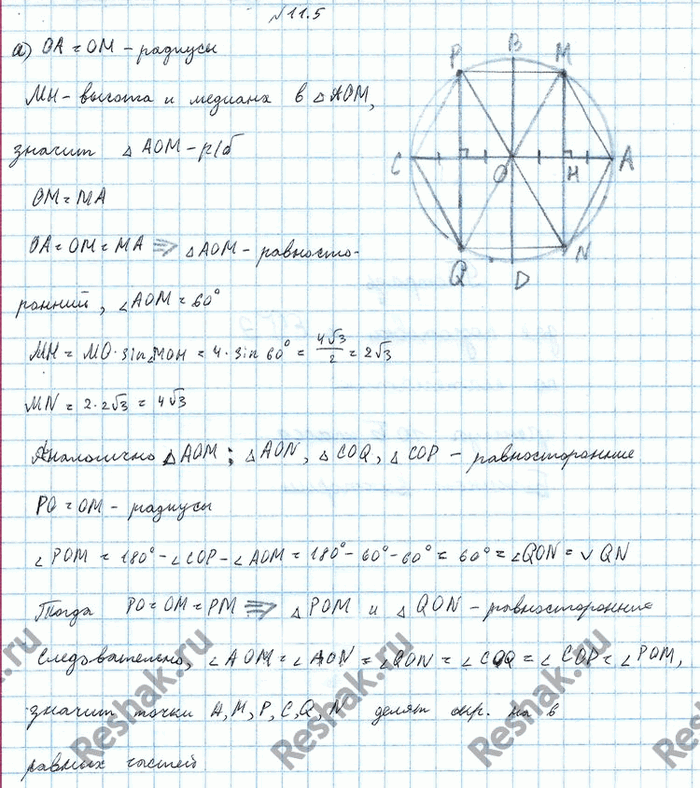 №11.5
а) OA = OM - радиусы
MH - высота и медиана в △AOM,
значит △AOM - р/б
OM = MA
OA = OM = MA ⇒ △AOM - равносто-
ронний, ∠AOM = 60°
MH = MO · sin∠MOH = 4 · sin 60° = 4√3/2 = 2√3
MN = 2 · 2√3 = 4√3
Аналогично △AOM; △AON, △COQ, △COP - равносторонние
PO = OM - радиусы
∠POM = 180° - ∠COP - ∠AOM = 180° - 60° - 60° = 60° = ∠QON = ◡QN
Тогда PO = OM = PM ⇒ △POM и △QON - равносторонние
Следовательно, ∠AOM = ∠AON = ∠QON = ∠COQ = ∠COP = ∠POM,
значит точки A, M, P, C, Q, N делят окр. на 6
равных частей
B
P M
C O H A
Q D N
Reshak.ru
Reshak.ru
Reshak.ru
Reshak.ru